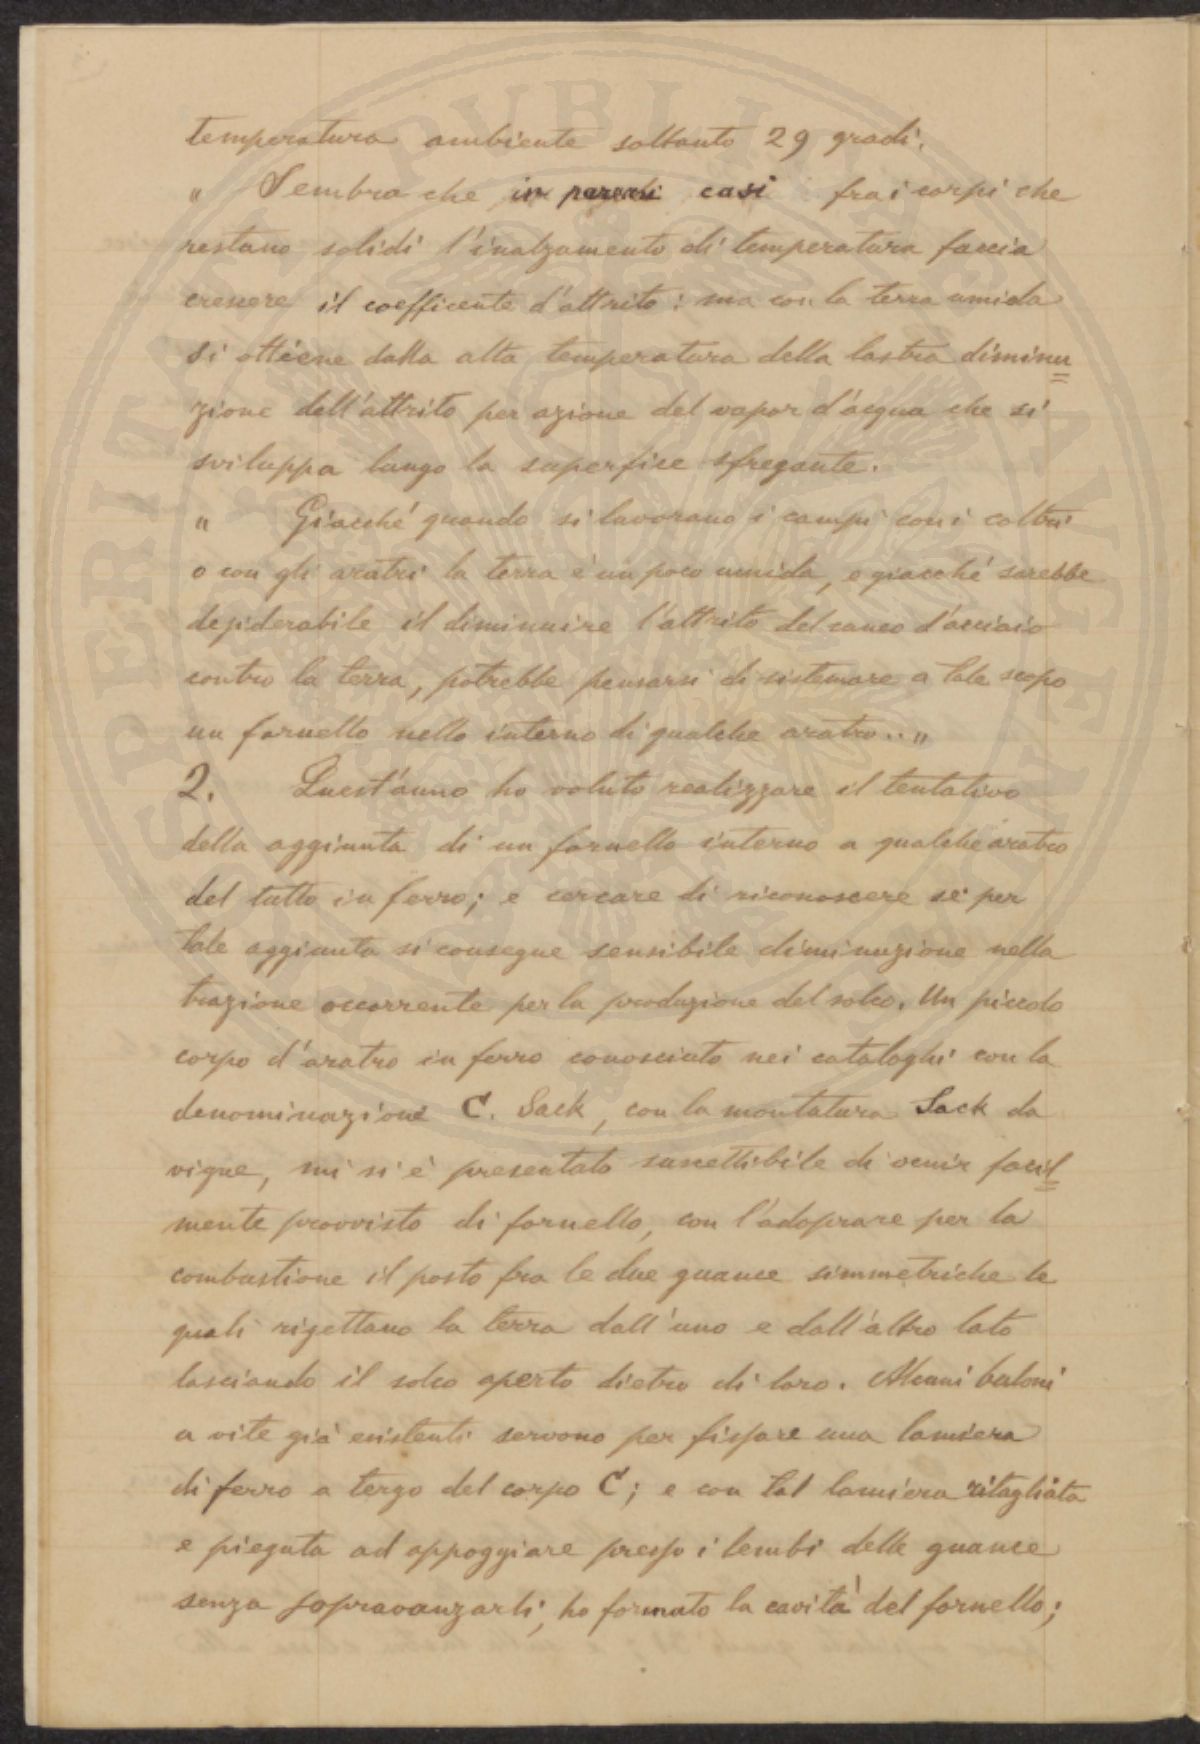 temperatura ambiente soltanto 29 gradi.
„ Sembra che in parecchi casi fra i corpi che
restano solidi l'inalzamento di temperatura faccia
crescere il coefficente d'attrito: ma con la terra umida
si ottiene dalla alta temperatura della lastra diminu
zione dell'attrito per azione del vapor d'acqua che si
sviluppa lungo la superfice sfregante.
„ Giacché quando si lavorano i campi con i coltri
o con gli aratri la terra è un poco umida, e giacché sarebbe
desiderabile il diminuire l'attrito del cuneo d'acciaio
contro la terra, potrebbe pensarsi di sistemare a tale scopo
un fornello nello interno di qualche aratro..„
2. Quest'anno ho voluto realizzare il tentativo
della aggiunta di un fornello interno a qualche aratro
del tutto in ferro; e cercare di riconoscere se per
tale aggiunta si consegue sensibile diminuzione nella
trazione occorrente per la produzione del solco. Un piccolo
corpo d'aratro in ferro conosciuto nei cataloghi con la
denominazione C. Sack, con la montatura Sack da
vigne, mi si è presentato suscettibile di venir facil
mente provvisto di fornello, con l'adoprare per la
combustione il posto fra le due guance simmetriche le
quali rigettano la terra dall'uno e dall'altro lato
lasciando il solco aperto dietro di loro. Alcuni buloni
a vite già esistenti servono per fissare una lamiera
di ferro a tergo del corpo C; e con tal lamiera ritagliata
e piegata ad appoggiare presso i lembi delle guance
senza sopravanzarli, ho formato la cavità del fornello;
SPERITAT PVBLICAE AVGENDAE